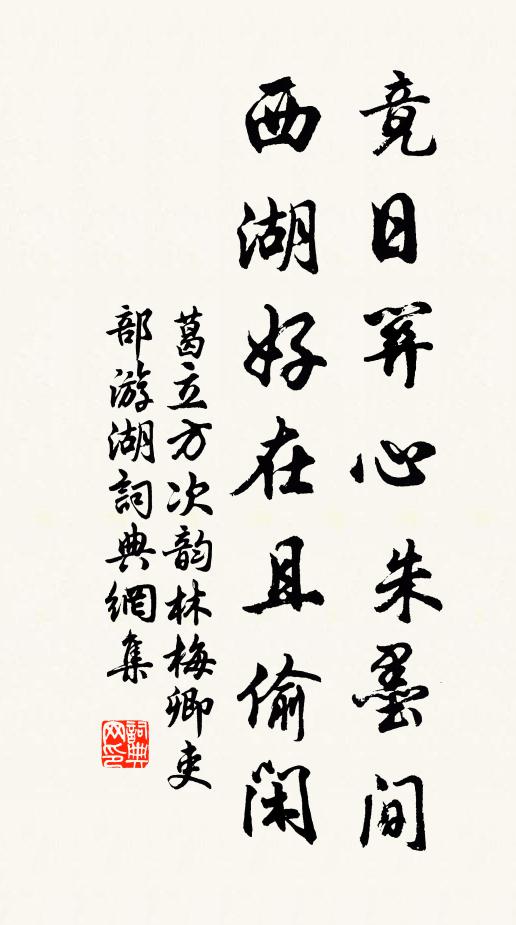 竟日笄心朱墨間
西湖好在且偷閑
葛立方次韵林梅卿吏
部游湖詞典網集
詞典
网印